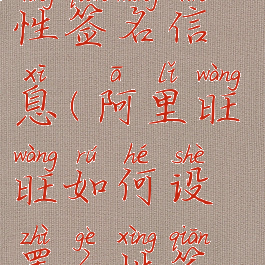 性签名信
xī ā lǐ wàng
息(阿里旺
wàng rú hé shè
旺如何设
zhì gè xìng qiān
置个性签